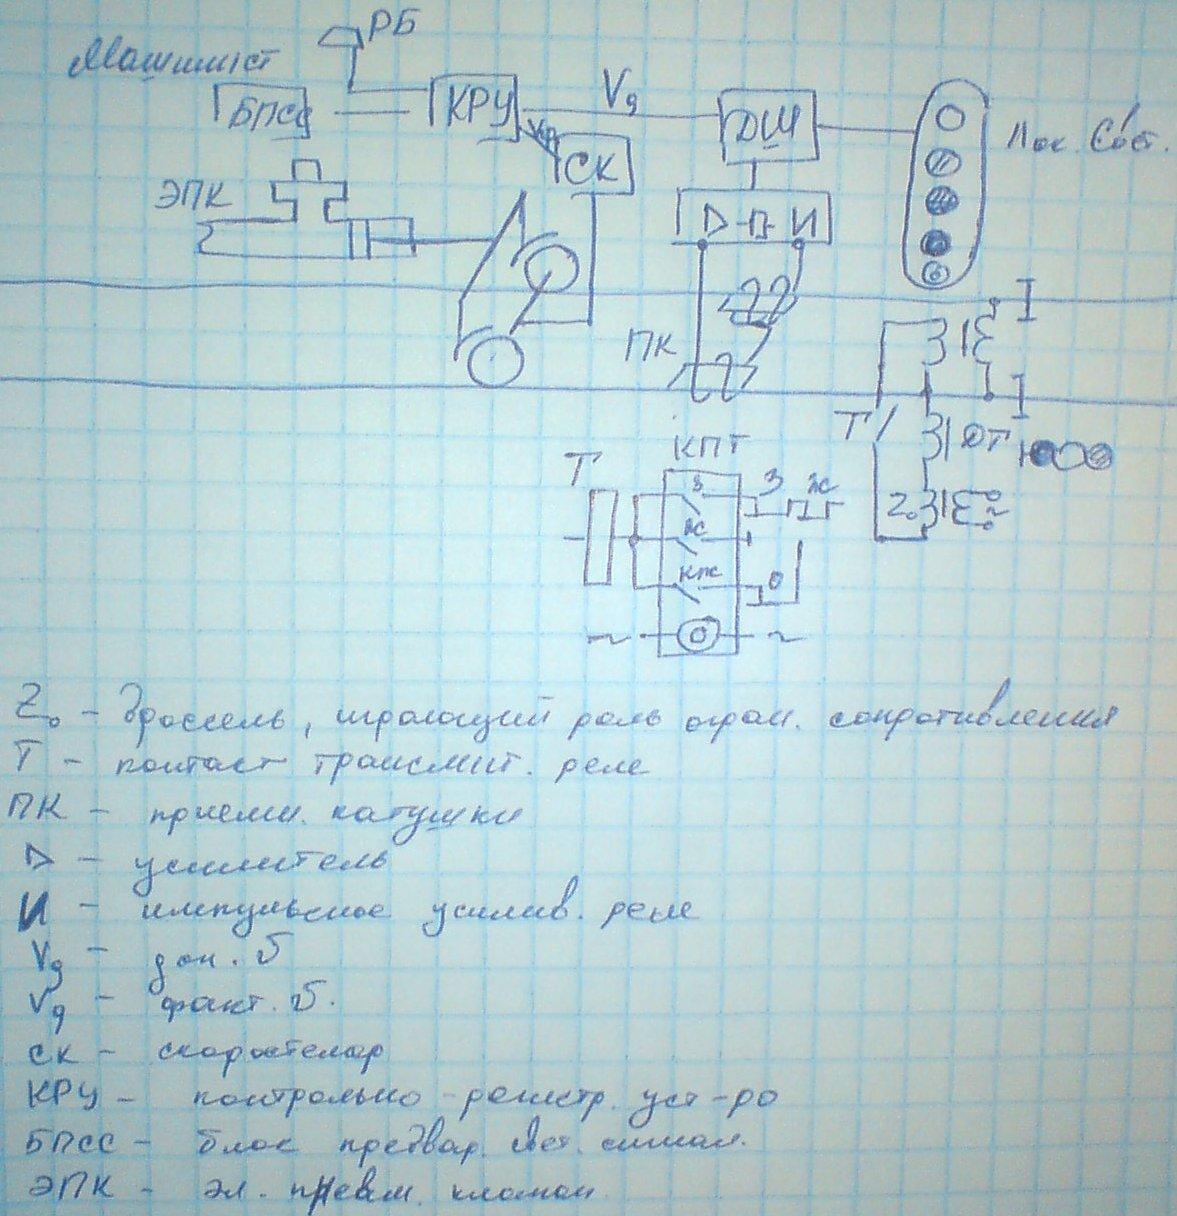 РБ
Машинист
БПСС
КРУ
Vд
ДШ
Лок. Свет.
СК
ЭПК
И
ПК
Т
ОТ
КПТ
Т
З
З
Ж
Ж
КЖ
Z₀
~
~
~
Z₀ - дроссель, играющий роль огран. сопротивления
Т - контакт трансмит. реле
ПК - приемн. катушки
- усилитель
И - импульсное усилив. реле
Vд - доп. V
- факт. V.
СК - скоростемер
КРУ - контрольно-регистр. уст-ро
БПСС - блок предвар. свет. сигнал.
ЭПК - эл. пневм. клапан